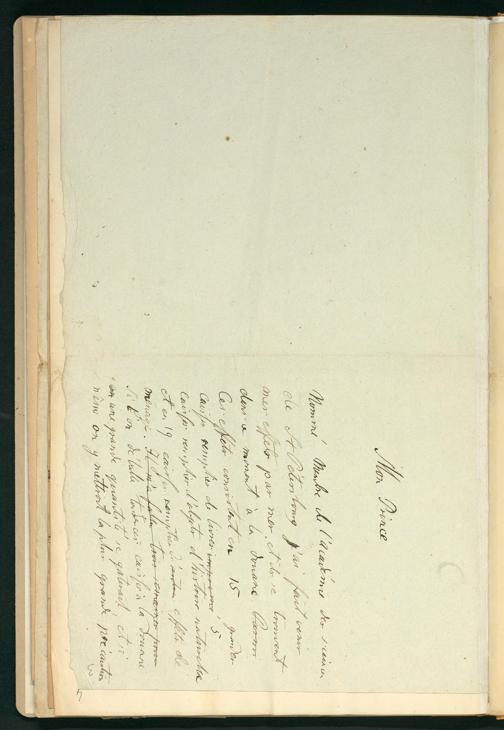 Mon Prince
Nommé Membre de l'académie des sciences
de St Petersbourg j'ai fait venir
mes effets par mer, et ils se trouvent
dans ce moment à la douane
Ces effets consistent en 15 grandes
caisses remplies de livres, 5
caisses remplies d'objets d'histoire naturelle
et en 19 caisses remplies d'effets de
ménage. Il
Si l'on déballe toutes ces caisses à la douane
une grande quantité se gâterait, et si
même on y mettrait la plus grande précaution